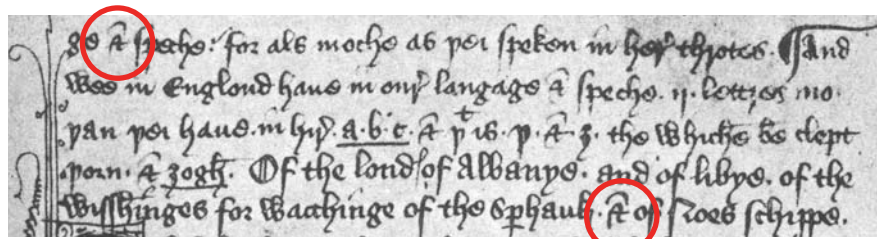 ge ⁊ speche: for als moche as þei speken in her throtes. ¶And
wee in Englond haue in our langage ⁊ speche .ij. lettres mo.
þan þei haue in hir .a.b.c. ⁊ þt is .þ. ⁊ .ȝ. the whiche be clept
þorn. ⁊ ȝogh. Of the lond of Albanye. and of libye. of the
wisshinges for wacchinge of the Sperhauk. ⁊ of Noes schippe.